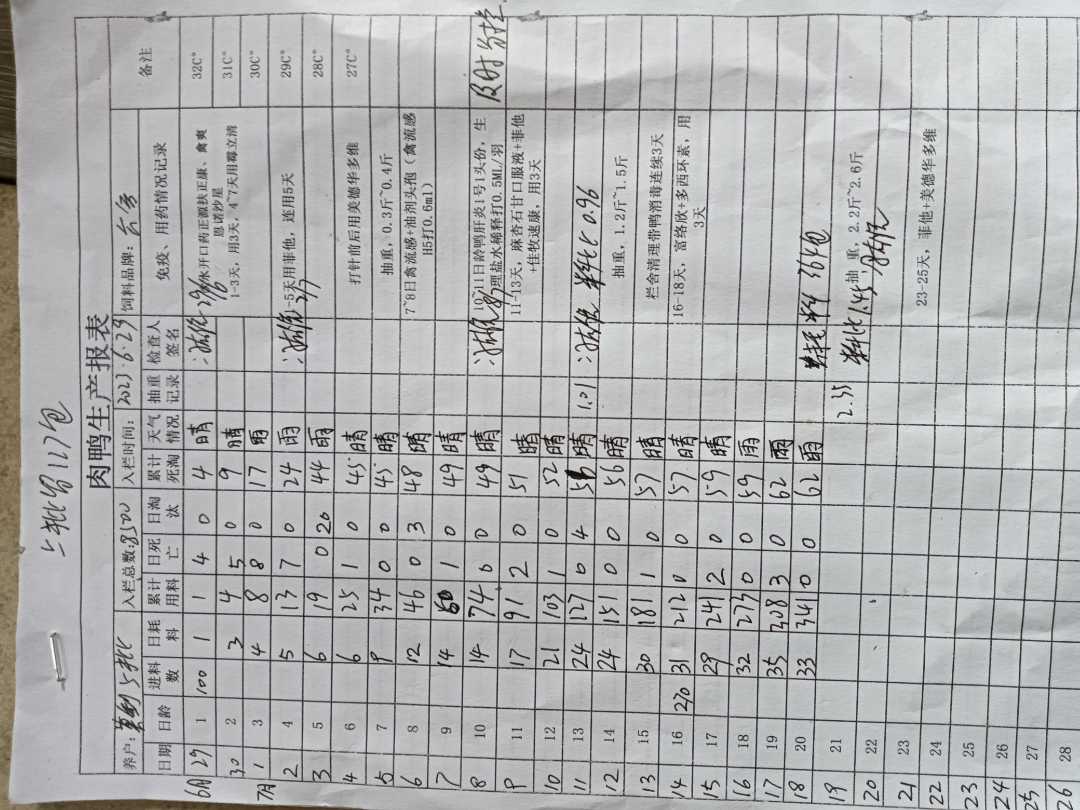 上批省127包
肉鸭生产报表
养户: 5批 入栏总数:8500 入栏时间: 2023.6.29 饲料品牌:
日期 日龄 进料数 日耗料 累计用料 日死亡 日淘汰 累计死淘 天气情况 抽重记录 检查人签名 免疫、用药情况记录 备注
6月29 1 100 1 1 4 0 4 晴 29/6 水开口药正源扶正康、禽爽 恩诺沙星 32C°
30 2 3 4 5 0 9 晴 1-3天，用3天，4~7天用霉立清 31C°
7月1 3 4 8 8 0 17 雨 30C°
2 4 5 13 7 0 24 雨 2/7 -5天用菲他，连用5天 29C°
3 5 6 19 0 20 44 雨 28C°
4 6 6 25 1 0 45 晴 打针前后用美德华多维 27C°
5 7 9 34 0 0 45 晴 抽重，0.3斤~0.4斤
6 8 12 46 0 3 48 晴 7~8日禽流感+油剂头孢（禽流感H5打0.6ml）
7 9 14 60 1 0 49 晴
8 10 14 74 0 0 49 晴 8/7 10~11日龄鸭肝炎1号1头份，生理盐水稀释打0.5ML/羽 及时分栏
9 11 17 91 2 0 51 晴 11-13天，麻杏石甘口服液+菲他+佳牧速康，用3天
10 12 21 103 1 0 52 晴
11 13 24 127 0 4 56 晴 1.01 料比0.96
12 14 24 151 0 0 56 晴 抽重，1.2斤~1.5斤
13 15 30 181 1 0 57 晴 栏舍清理带鸭消毒连续3天
14 16 270 31 212 0 0 57 晴 16-18天，富络欣+多西环素，用3天
15 17 29 241 2 0 59 晴
16 18 32 273 0 0 59 雨
17 19 35 308 3 0 62 雨
18 20 33 341 0 0 62 雨 料364包
19 21 2.35 料比1.45 抽重，2.2斤~2.6斤
20 22
21 23
22 24 23-25天，菲他+美德华多维
23 25
24 26
25 27
26 28